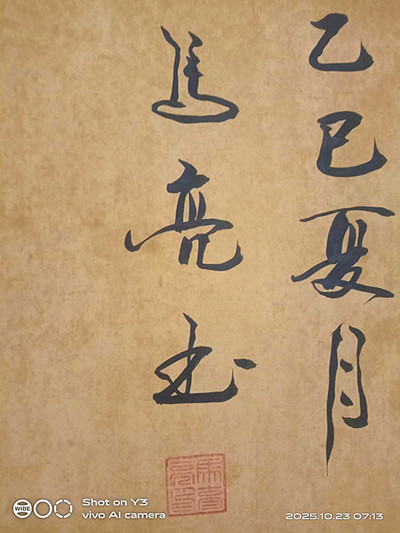 乙巳夏月
馬亮书
WIDE
Shot on Y3
vivo AI camera
2025.10.23 07:13